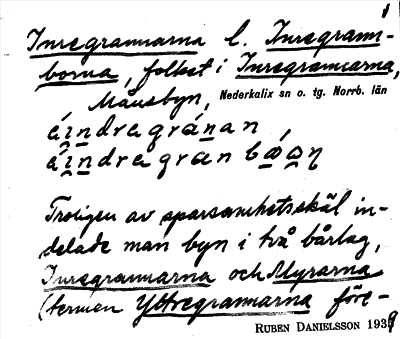 1
Inregrannarna l. Inregrann-
borna, folket i Inregrannarna,
Månsbyn, Nederkalix sn o. tg. Norrb. län
Troligen av sparsamhetsskäl in-
delade man byn i två bårlag,
Inregrannarna och Myrarna
(termen Yttregrannarna före-
RUBEN DANIELSSON 1939